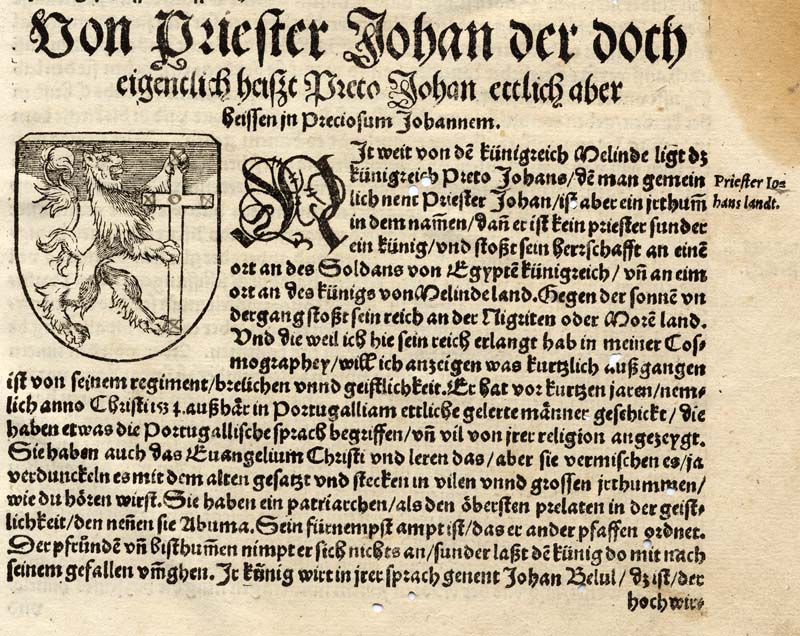 Von Priester Johan der doch
eigentlich heiszt Preto Johan ettlich aber
heissen jn Preciosum Johannem.
NJt weit von dē künigreich Melinde ligt dz
künigreich Preto Johans/dē man gemein
lich nent Priester Johan/ist aber ein jrthum̄
in dem nam̄en/dañ er ist kein priester sunder
ein künig/vnd stoßt sein herrschafft an einē
ort an des Soldans von Egyptē künigreich/vñ an eim
ort an des künigs von Melinde land. Gegen der sonnē vn
dergang stoßt sein reich an der Nigriten oder Morē land.
Vnd die weil ich hie sein reich erlangt hab in meiner Cos-
mographey/will ich anzeigen was kurtzlich außgangen
ist von seinem regiment/brelichen vnnd geistlichkeit. Er hat vor kurtzen jaren/nem-
lich anno Christi 1534. außhär in Portugalliam ettliche gelerte männer geschickt/die
haben etwas die Portugallische sprach begriffen/vñ vil von jrer religion angezeygt.
Sie haben auch das Euangelium Christi vnd leren das/aber sie vermischen es/ja
verdunckeln es mit dem alten gesatzt vnd stecken in vilen vnnd grossen jrthummen/
wie du hören wirst. Sie haben ein patriarchen/als den öbersten prelaten in der geist-
lichkeit/den neñen sie Abuma. Sein fürnempst ampt ist/das er ander pfaffen ordnet.
Der pfründē vñ bisthum̄en nimpt er sich nichts an/sunder laßt dē künig do mit nach
seinem gefallen vm̄ghen. Jr künig wirt in jrer sprach genent Johan Belul/dz ist/der
hochwir-
Priester Jo-
hans landt.